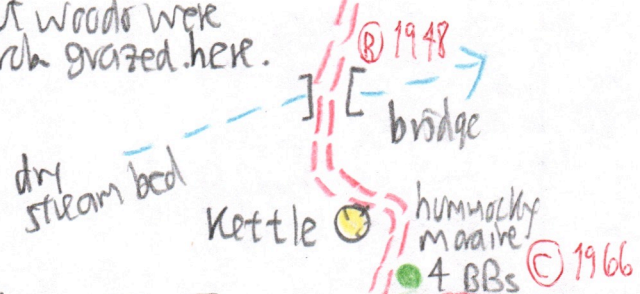 woods were
grazed here.
Ⓡ 1948
bridge
dry
stream bed
Kettle
hummocky
moraine
4 BBs Ⓒ 1966